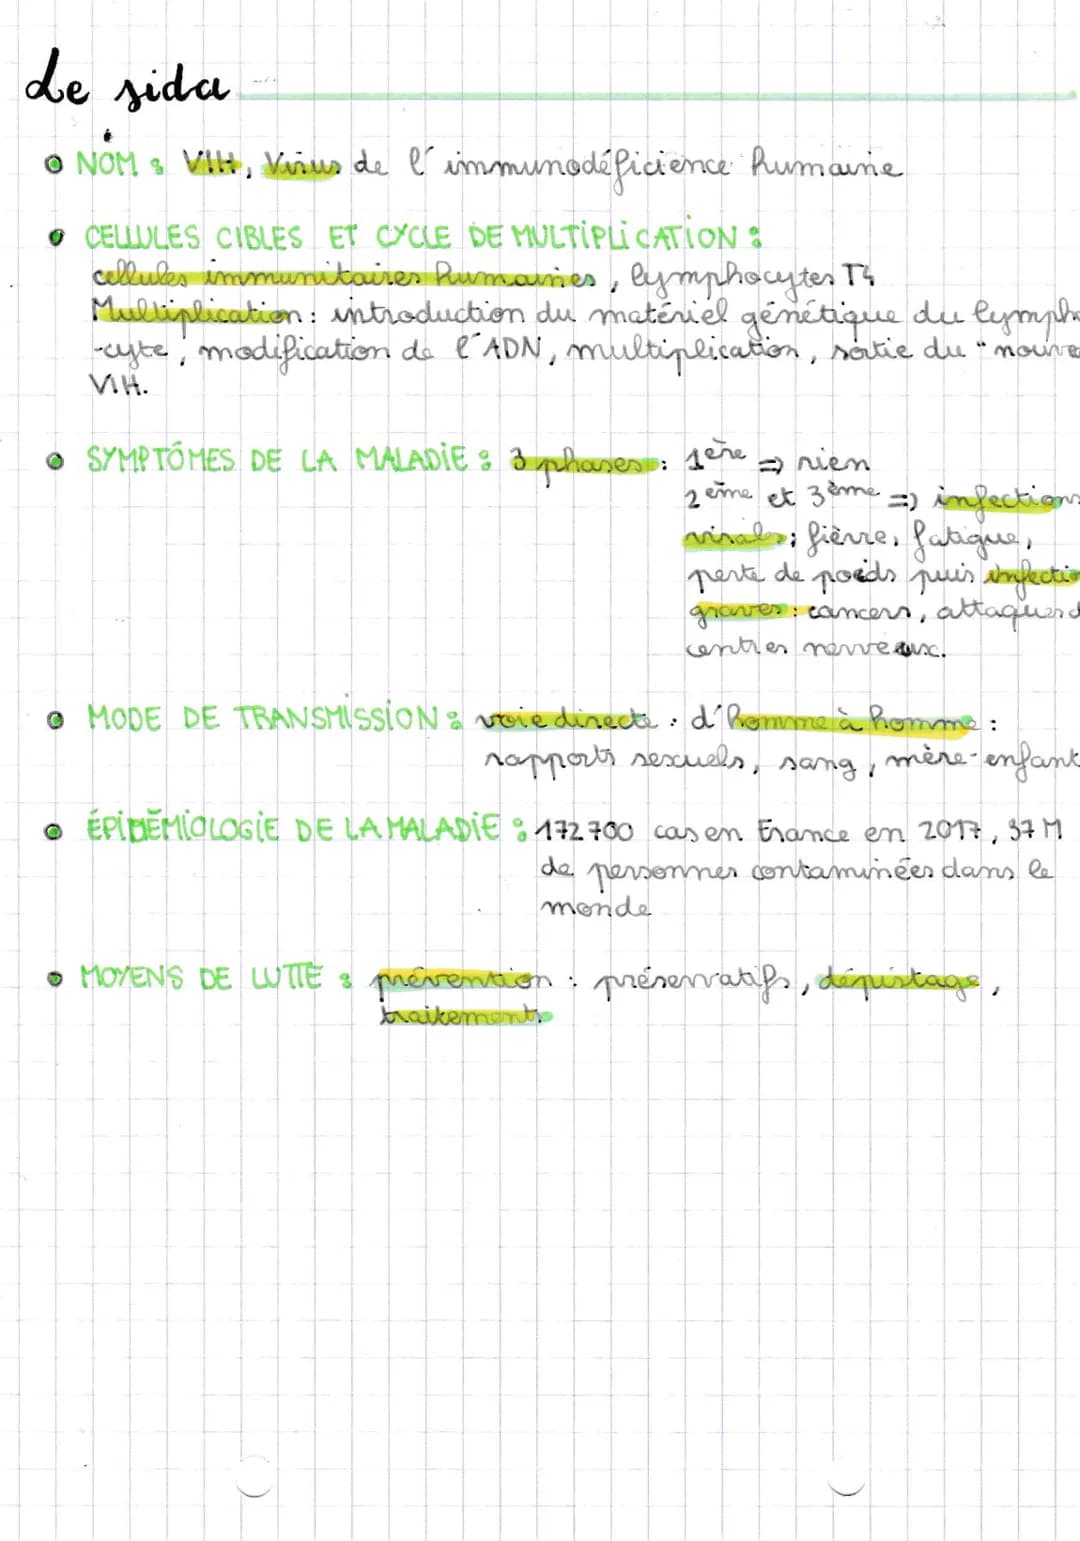 Le sida
NOM : VIH, Virus de l'immunodéficience humaine
CELLULES CIBLES ET CYCLE DE MULTIPLICATION :
cellules immunitaires humaines, lymphocytes T4
Multiplication : introduction du matériel génétique du lympho
-cyte, modification de l'ADN, multiplication, sortie du "nouve
VIH.
SYMPTÔMES DE LA MALADIE : 3 phases : 1ère => rien
2ème et 3ème => infections
virales ; fièvre, fatigue,
perte de poids puis infectio
graves : cancers, attaques d
centres nerveux.
MODE DE TRANSMISSION : voie directe : d'homme à homme :
rapports sexuels, sang, mère-enfant
ÉPIDÉMIOLOGIE DE LA MALADIE : 172 700 cas en France en 2017, 37 M
de personnes contaminées dans le
monde
MOYENS DE LUTTE : prévention : préservatifs, dépistage,
traitements